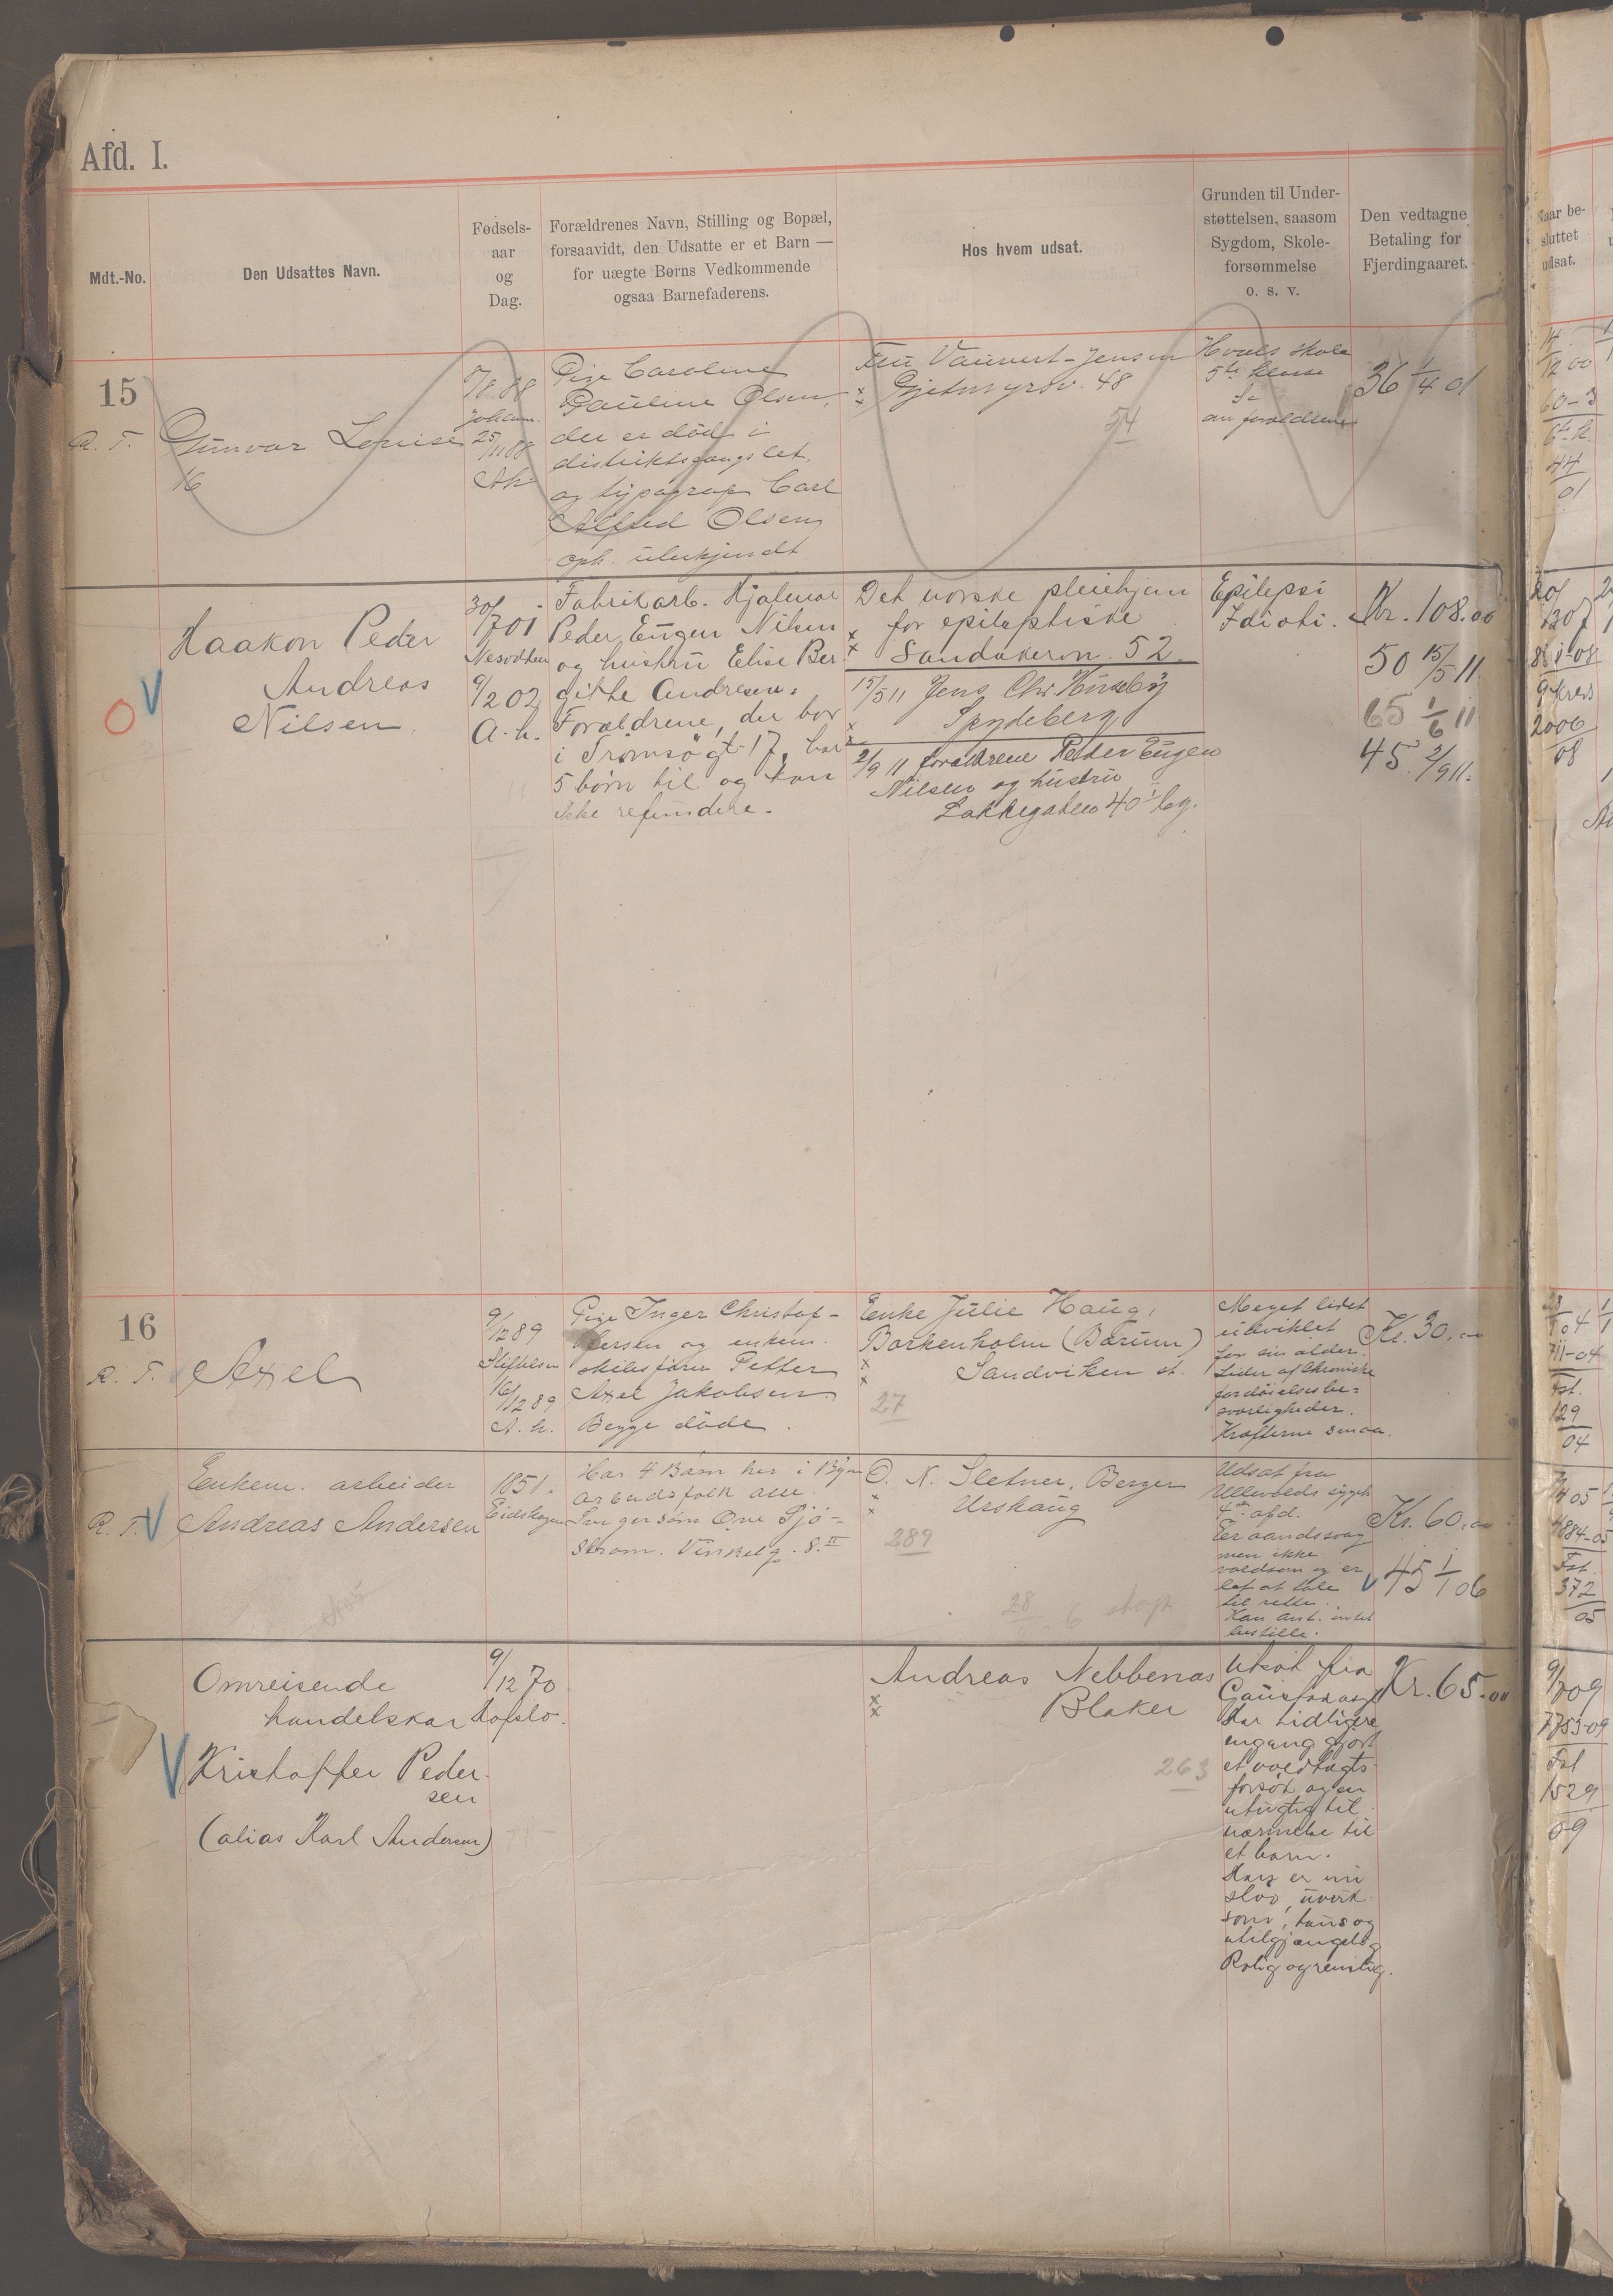 Afd. I.
Mdt.-No.
Den Udsattes Navn.
Fødsels-
aar
og
Dag.
Forældrenes Navn, Stilling og Bopæl,
forsaavidt, den Udsatte er et Barn —
for uægte Børns Vedkommende
ogsaa Barnefaderens.
Hos hvem udsat.
Grunden til Under-
støttelsen, saasom
Sygdom, Skole-
forsømmelse
o. s. v.
Den vedtagne
Betaling for
Fjerdingaaret.
15
R. T.
Gunvor Louise
16
88
25/11 88
Pige Caroline
Pauline Olsen,
der er død i
distriktsfængslet,
og typograf Carl
Alfred Olsen,
oph. ubekjendt
Fru Vauvert-Jensen
Gjetmyrsv. 48
54
Hvals skole
5te klasse
av forældrene
36 1/4 01
Haakon Peder
Andreas
Nilsen
30/7 01
Nesodden
9/2 02
A. k.
Fabrikarb. Hjalmar
Peder Eugen Nilsen
og hustru Elise Ber
gitte Andresen.
Forældrene, der bor
i Tromsögt 17, har
5 børn til og kan
ikke refundere.
Det norske pleiehjem
for epileptiske
Sandakerv. 52
15/5 11 Jens Chr. Huseby
Spydeberg
2/9 11 forældrene Peder Eugen
Nilsen og hustru
Lakkegaten 40 I bg.
Epilepsi
Idioti.
Kr. 108.00
50 15/5 11
65 1/6 11
45 2/9 11.
16
R. T.
Axel
9/12 89
Stiftelsen
16/12 89
A. k.
Pige Inger Christof-
fersen og enkem.
Petter
Axel Jakobsen.
Begge døde.
Enke Julie Haug,
Borkenholm (Bærum)
Sandviken st.
27
Meget lidet
udviklet
for sin alder.
Lider af chroniske
fordøielsesbe=
sværligheder.
Kræfterne smaa.
Kr. 30.00
R. T.
Enkem. arbeider
Andreas Andersen
1851.
Eidskogen
Har 4 Børn her i Byen
Arbeidsfolk alle.
Inger søm Ove Sjö-
strøm. Vinkelg. 8. II
O. N. Sletner, Berger
Urskaug
289
28
Udsat fra
Ullevolds sygeh
4de afd.
Er aandssvag
men ikke
voldsom og er
let at tale
til rette.
Kan ant. intet
bestille.
Kr. 60.00
45 1/1 06
Omreisende
handelskar
Kristoffer Peder-
sen
(alias Karl Andersen)
9/12 70
Hafslo.
Andreas Nebbenæs
Blaker
263
Utsat fra
Gaustad asyl
Har tidligere
engang gjort
et voldtægts-
forsøk og en
utugtig til-
nærmelse til
et barn.
Han er nu
sløv, uvirk-
som, taus og
utilgjængelig
Rolig og renslig.
Kr. 65.00
Naar be-
sluttet
udsat.